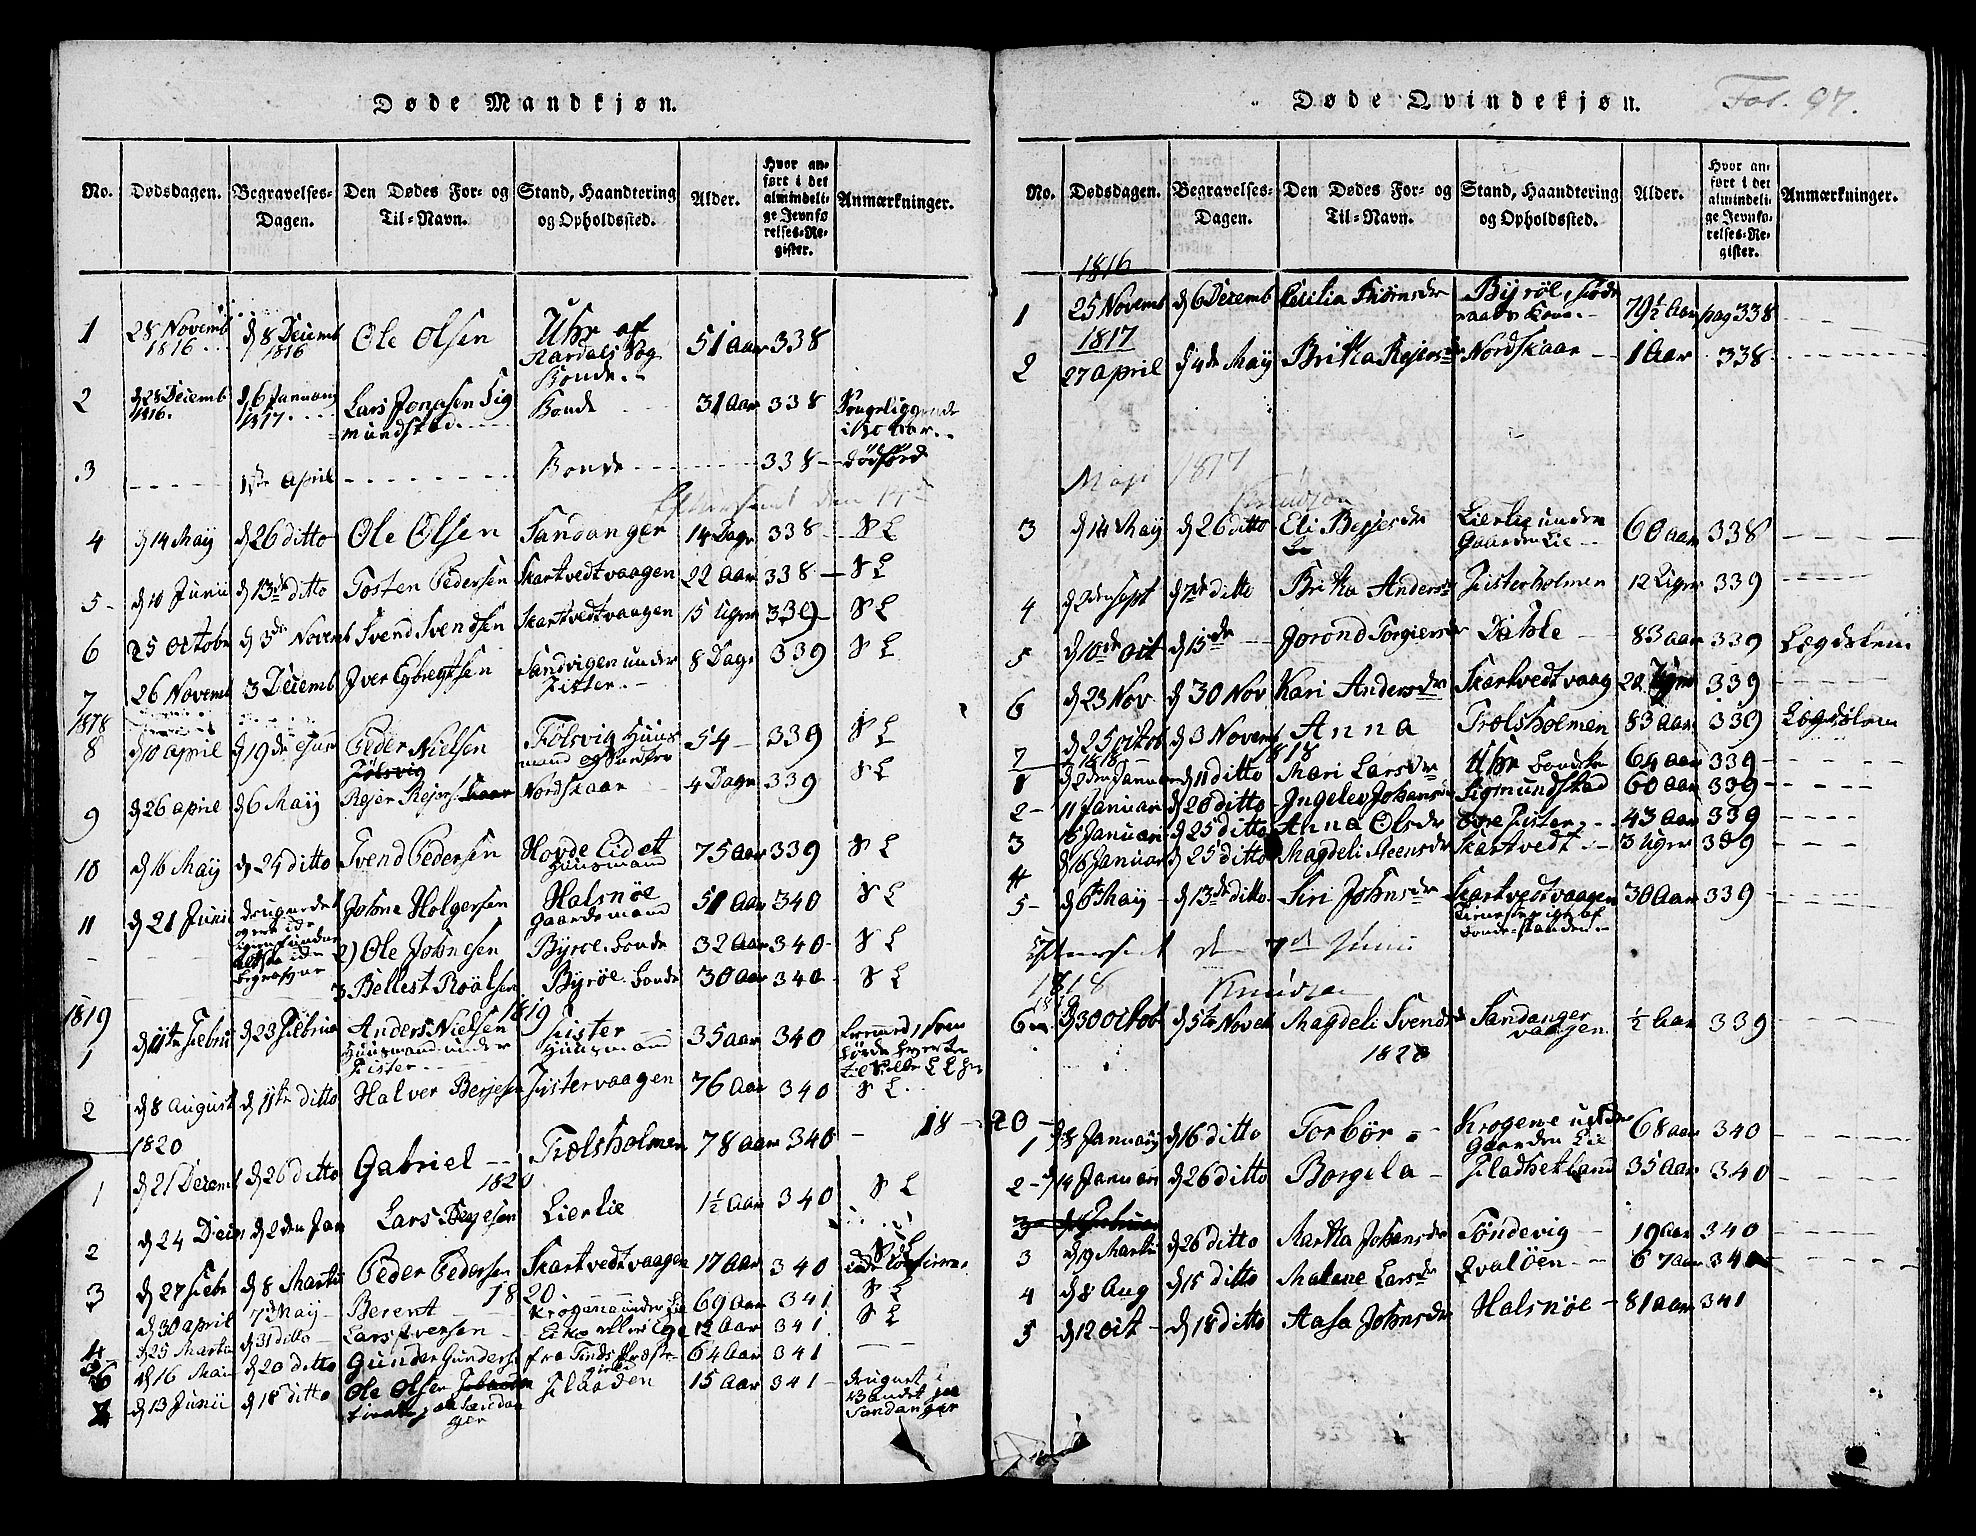 Døde Mandkjøn.
No. Dødsdagen. Begravelses-Dagen. Den Dødes For- og Til-Navn. Stand, Haandtering og Opholdssted. Alder. Hvor anført i det almindelige Jevnførelses-Register. Anmærkninger.
1 28 Novemb 1816 d 8 Decemb 1816 Ole Olsen Uhr af Aardals Sog Bonde 51 Aar 338
2 d 28 Decemb 1816. d 6 Januarij 1817. Lars Jonasen Sigmundstad Bonde 31 Aar 338
3 1ste April Bonde 338 dødförd
4 d 14 Maij d 26 ditto Ole Olsen Sandanger 14 Dage 338 S L
5 d 10 Junii d 13de ditto Tosten Pedersen Skartvedtvaagen 22 Aar 338 S L
6 25 Octobr d 3de Novemb Svend Svendsen Skartvedtvaagen 15 Uger 339 S L
7 26 Novemb 3 Decemb Iver Egbregtsen Sandvigen under Fister 8 Dage 339 S L
1818
8 d 10 April d 19de Peder Nielsen Fölsvig Fölsvig Huusmand og 54 339 S L
9 d 26 April d 6 Maij Rejer Rejers Nordskaar 4 Dage 339 S L
10 d 16 Maij d 24 ditto Svend Pedersen Hovde Eidet Huusmand 75 Aar 339 S L
11 d 21 Junii Johne Holgersen Halsnöe Gaardemand 51 Aar 340 S L
2) Ole Johnesen Byröe Bonde 32 Aar 340 S L
3 Bellest Roalsen Byröe Bonde 30 Aar 340 S L
1819 1819
1 d 11te Febru d 23 Februa Anders Nielsen Huusmand under Fister Fister Huusmand 35 Aar 340
2 d 8 August d 11te ditto Halver Berjesen Fistervaagen 76 Aar 340 S L
1820
1 d 21 Decemb d 26 ditto Gabriel Trælsholmen 78 aar 340
1820
2 d 24 Decm d 2den Jan Lars Lierlie 1½ Aar 340 S L
3 d 27 Febr d 8 Martii Peder Pedersen Skartvedtvaagen 17 Aar 340
1820
d 30 April 7de Maij Berent Krogene under Lie 69 Aar 341 S L
d 25 Martii d 31 ditto Lars Iversen 12 Aar 341 S L
d 16 Maii d 20 ditto Gunder Gunders fra Finds Præste 64 Aar 341
d 13 Junii d 18 ditto Ole Olsen Sandanger 15 Aar 341 drugnet i Vandet paa Sandanger
Døde Qvindekjøn. Fol. 97.
No. Dødsdagen. Begravelses-Dagen. Den Dødes For- og Til-Navn. Stand, Haandtering og Opholdssted. Alder. Hvor anført i det almindelige Jevnførelses-Register. Anmærkninger.
1816
1 25 Novemb d 6 Decemb Cecilia Biörnsdr Byröe, 79½ Aar pag 338
1817
2 27 April d 4de Maij Britha Rejersdr Nordskaar 1 Aar 338
Maji 1817 Knudson
3 d 14 Maij d 26 ditto Eli Berjesdr Lierlie under Gaarden Lie 60 Aar 338
4 d 2den Sept d 7de ditto Britha Andersdr Fisterholmen 12 Uger 339
5 d 10de Oct d 15de Jorond Torgiersdr Dahle 83 aar 339 Lægdslem
6 d 23 Nov d 30 Nov Kari Andersdr Skartvedtvaag 20 Uger 339
7 d 25 Octob d 3 Novemb Anna Trælsholmen 83 Aar 339 Lægdslem
1818 1818
1 d 2den Januar d 11 ditto Mari Larsdr Uhr 64 aar 339
2 11 Januar d 20 ditto Ingelev Johansdr Sigmundstad 60 aar 339
3 15 Januar d 25 ditto Anna Olsdr Övre Fister 43 Aar 339
4 d 16 Januar d 25 ditto Magdeli Steensdr Skartvedt 3 Uger 339
5 d 6te Maij d 13de ditto Siri Johnsdr Skartvedtvaagen Bondestanden 30 Aar 339
den 7de Junii 1818 Knudson
6 d 30 Octob d 5te Novemb Magdeli Svendsdr Sandanger vaagen ½ Aar 339
1820
1820
1 d 8 Januarij d 16 ditto Torbör Krogene under Gaarden Lie 68 aar 340
2 14 Januarii d 26 ditto Borgela Fladhekland 35 Aar 340
3 d 19 Martii d 26 ditto Martha Johansdr Töndevig 19 aar 340
4 d 8 Aug d 15 ditto Malene Larsdr Qvalöen 67 aar 340
5 d 12 Oct d 18 ditto Aasa Johnsdr Halsnöe 81 aar 341